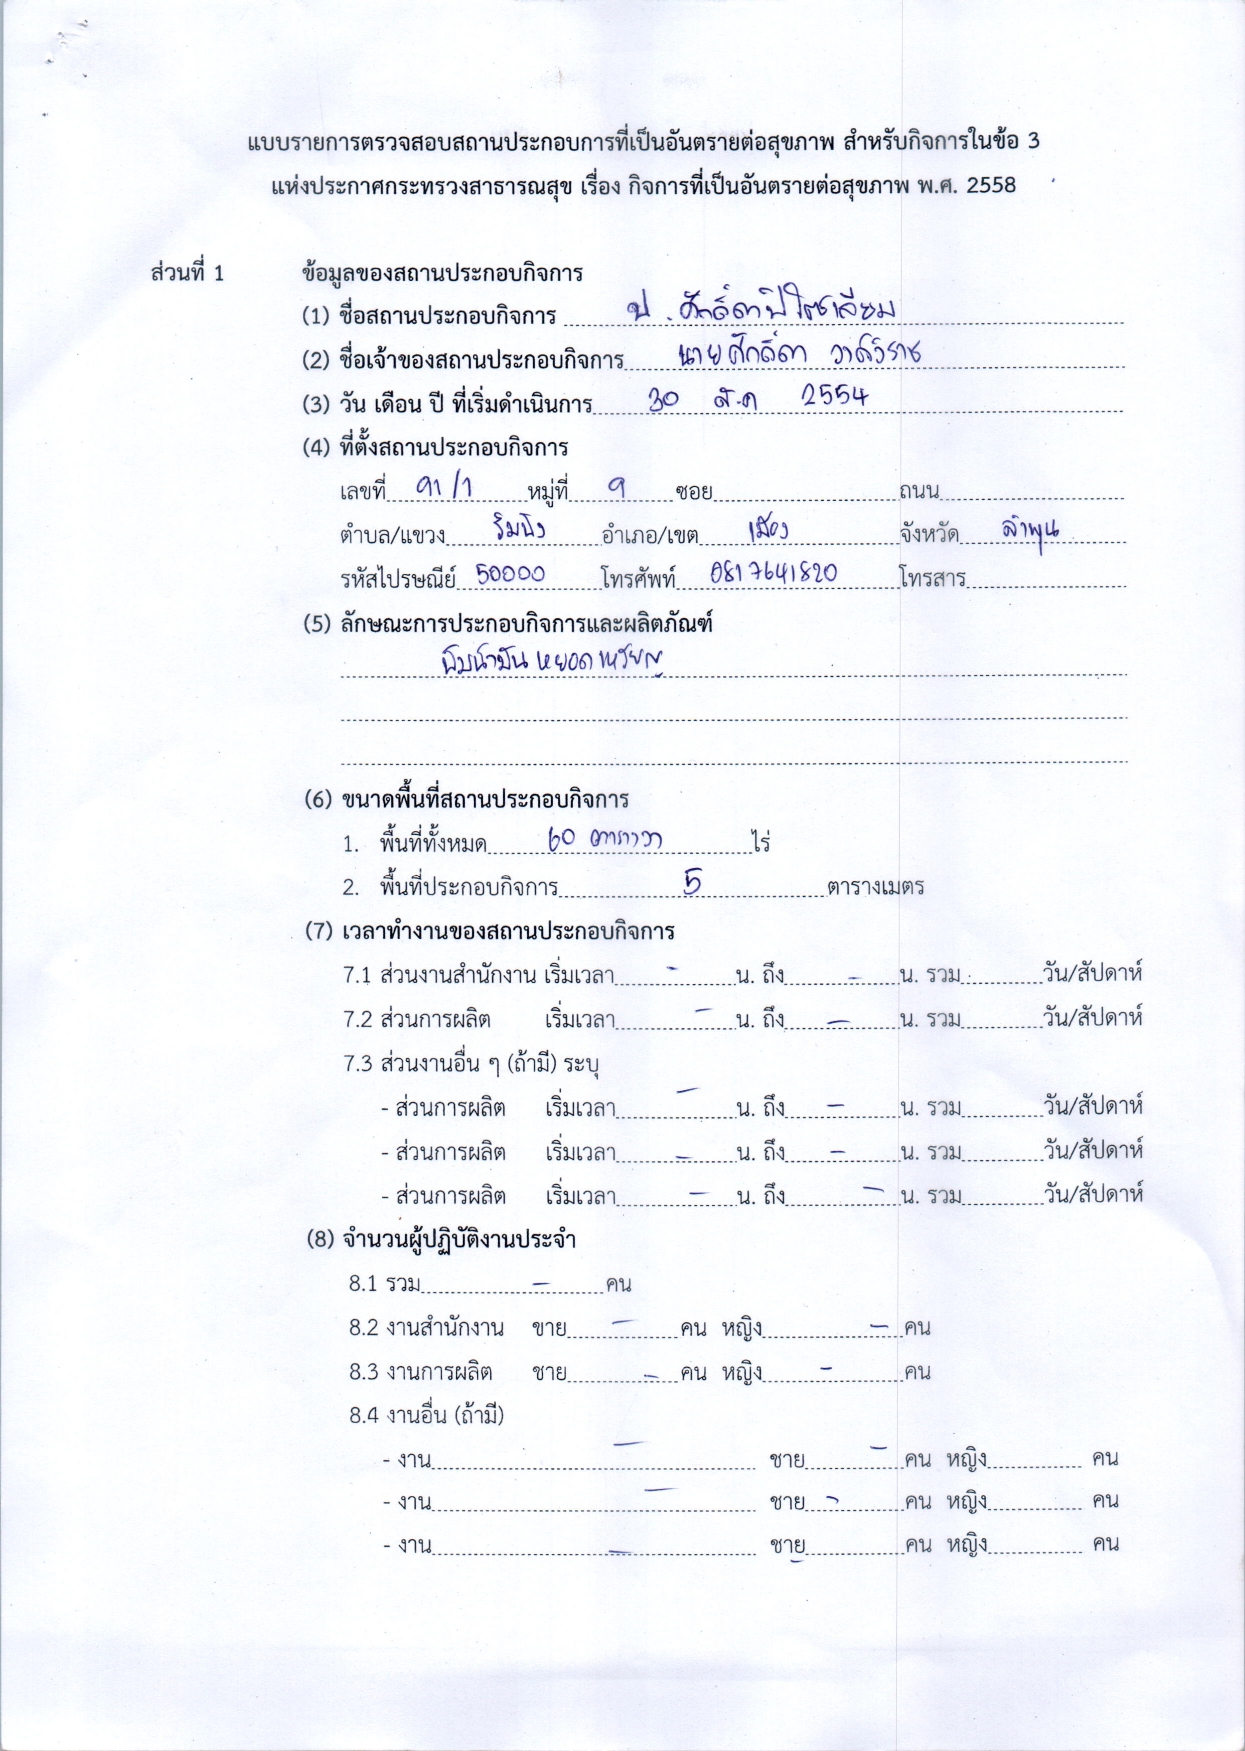 แบบรายการตรวจสอบสถานประกอบการที่เป็นอันตรายต่อสุขภาพ สำหรับกิจการในข้อ 3
แห่งประกาศกระทรวงสาธารณสุข เรื่อง กิจการที่เป็นอันตรายต่อสุขภาพ พ.ศ. 2558
ส่วนที่ 1 ข้อมูลของสถานประกอบกิจการ
(1) ชื่อสถานประกอบกิจการ ป. ศักดิ์ดาปิโตรเลียม
(2) ชื่อเจ้าของสถานประกอบกิจการ นายศักดิ์ดา
(3) วัน เดือน ปี ที่เริ่มดำเนินการ 30 ส.ค 2554
(4) ที่ตั้งสถานประกอบกิจการ
เลขที่ 91/1 หมู่ที่ 9 ซอย ถนน
ตำบล/แขวง ริมปิง อำเภอ/เขต เมือง จังหวัด ลำพูน
รหัสไปรษณีย์ 50000 โทรศัพท์ 0817641820 โทรสาร
(5) ลักษณะการประกอบกิจการและผลิตภัณฑ์
ปั๊มน้ำมัน หยอดเหรียญ
(6) ขนาดพื้นที่สถานประกอบกิจการ
1. พื้นที่ทั้งหมด 60 ตารางวา ไร่
2. พื้นที่ประกอบกิจการ 5 ตารางเมตร
(7) เวลาทำงานของสถานประกอบกิจการ
7.1 ส่วนงานสำนักงาน เริ่มเวลา - น. ถึง - น. รวม วัน/สัปดาห์
7.2 ส่วนการผลิต เริ่มเวลา - น. ถึง - น. รวม วัน/สัปดาห์
7.3 ส่วนงานอื่น ๆ (ถ้ามี) ระบุ
- ส่วนการผลิต เริ่มเวลา - น. ถึง - น. รวม วัน/สัปดาห์
- ส่วนการผลิต เริ่มเวลา - น. ถึง - น. รวม วัน/สัปดาห์
- ส่วนการผลิต เริ่มเวลา - น. ถึง - น. รวม วัน/สัปดาห์
(8) จำนวนผู้ปฏิบัติงานประจำ
8.1 รวม - คน
8.2 งานสำนักงาน ชาย - คน หญิง - คน
8.3 งานการผลิต ชาย - คน หญิง - คน
8.4 งานอื่น (ถ้ามี)
- งาน - ชาย - คน หญิง คน
- งาน - ชาย - คน หญิง คน
- งาน - ชาย - คน หญิง คน